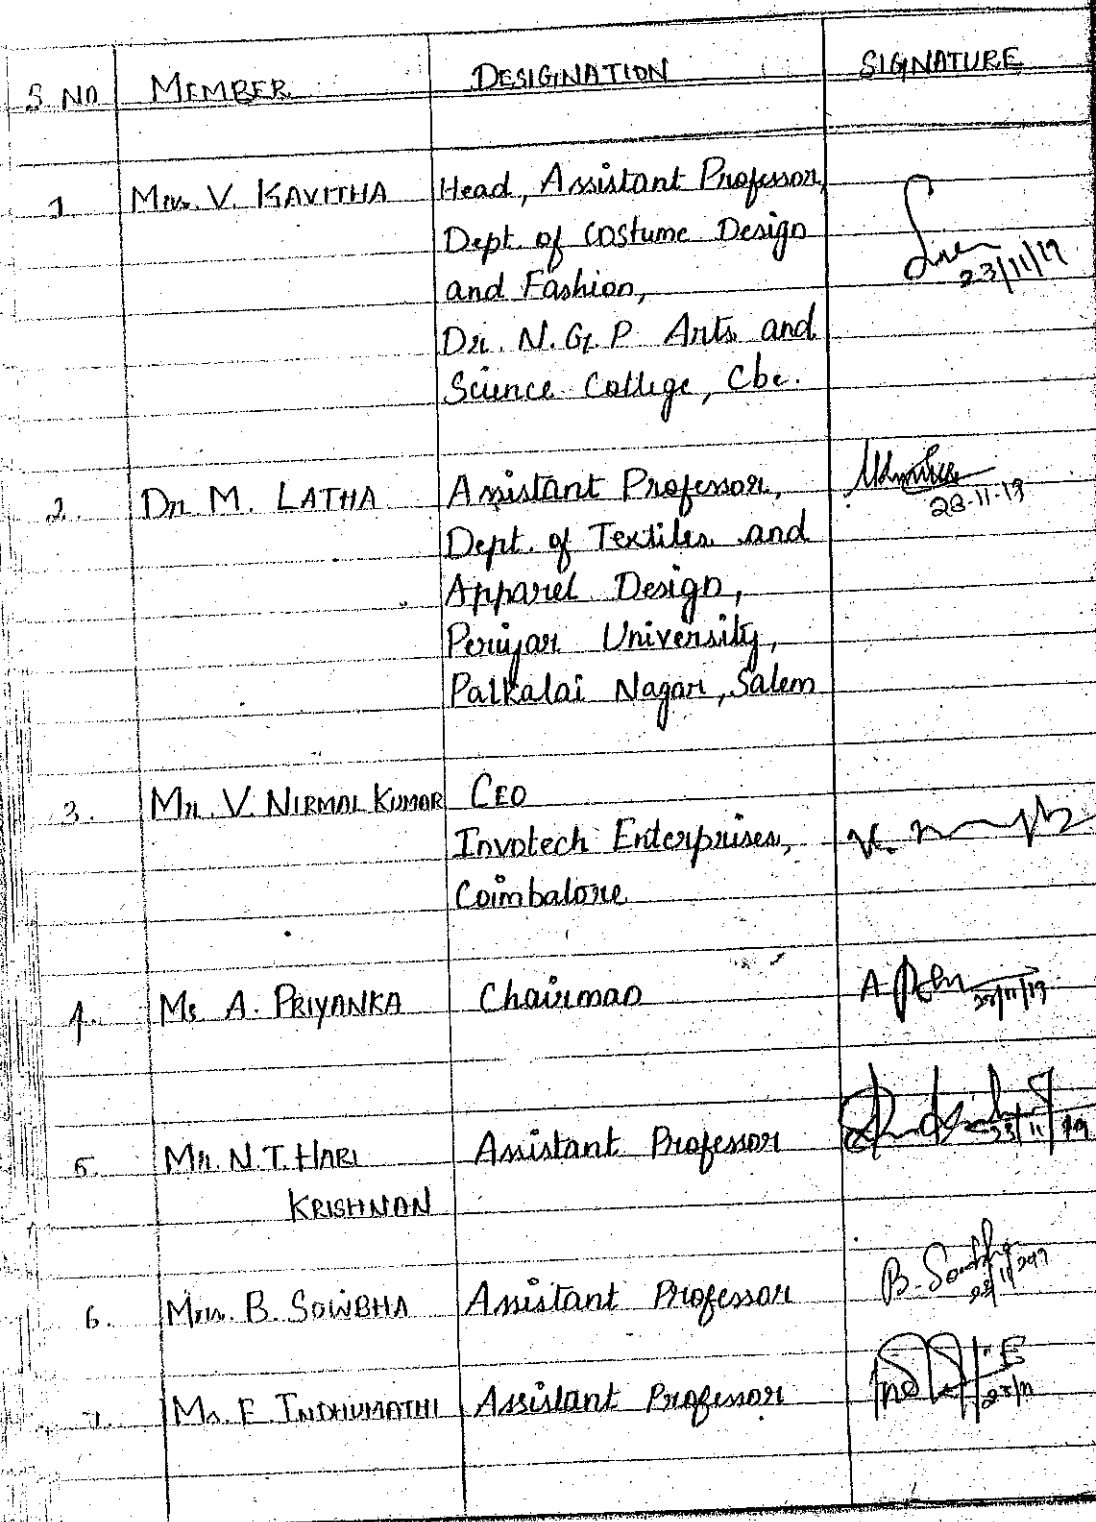 S. NO MEMBER DESIGNATION SIGNATURE
1. Mrs. V. KAVITHA Head, Assistant Professor,
Dept. of Costume Design
23/11/19
and Fashion,
Dr. N. G. P Arts and
Science College, Cbe.
2. Dr. M. LATHA Assistant Professor,
23-11-19
Dept. of Textiles and
Apparel Design,
Periyar University,
Palkalai Nagar, Salem
3. Mr. V. NIRMAL KUMAR CEO
Invotech Enterprises,
Coimbatore
4. Ms A. PRIYANKA Chairman A
23/11/19
5. Mr. N.T. HARI Assistant Professor 23/11/19
KRISHNAN
6. Mrs. B. SOWBHA Assistant Professor B. Sowbha
7. Ms. E. INDHUMATHI Assistant Professor